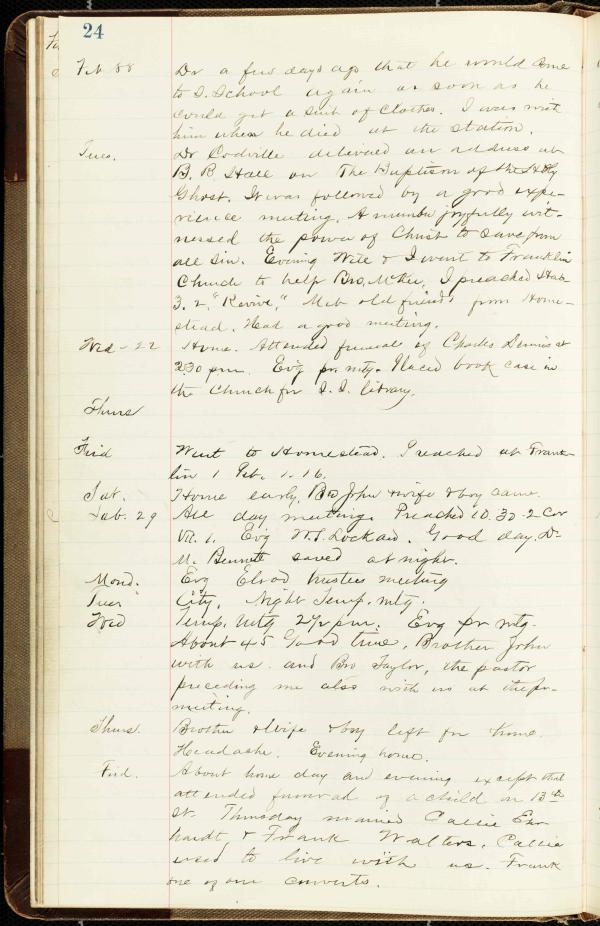 24
Feb 88 Dr a few days ago that he would come
to S. School again as soon as he
could get a suit of clothes. I was with
him when he died at the station.
Tues. Dr Codville delivered an address at
B. B Hall on The Baptism of the Holy
Ghost. It was followed by a good expe-
rience meeting. A number joyfully wit-
nessed the power of Christ to save from
all sin. Evening Wife & I went to Franklin
Church to help Bro. McKee, I preached Hab
3. 2, "Revive," Met old friends from Home-
stead. Had a good meeting.
Wed - 22 Home. Attended funeral of Charles at
2.30 pm. Ev'g pr. mtg. Placed book case in
the Church for S. S. library.
Thurs
Frid Went to Homestead. Preached at Frank-
lin 1 Pet. 1. 16.
Sat. Home early, Bro John & wife & boy came.
Sab. 29 All day meeting. Preached 10.30 - 2 Cor
VII. 1. Ev'g W. S. Lockard. Good day. Dr
M. Bennett saved at night.
Mond. Evg Elrod trustees meeting
Tues City. Night Temp. mtg.
Wed Temp. Mtg 2½ pm. Evg pr mtg.
About 45 Good time. Brother John
with us and Bro Taylor, the pastor
preceding me also with us at the pr-
meeting.
Thurs. Brother & Wife & boy left for home.
Headache. Evening home.
Frid. About home day and evening except that
attended funeral of a child on 13th
St. Thursday married Callie Ear-
hardt & Frank Walters. Callie
used to live with us. Frank
one of our converts.